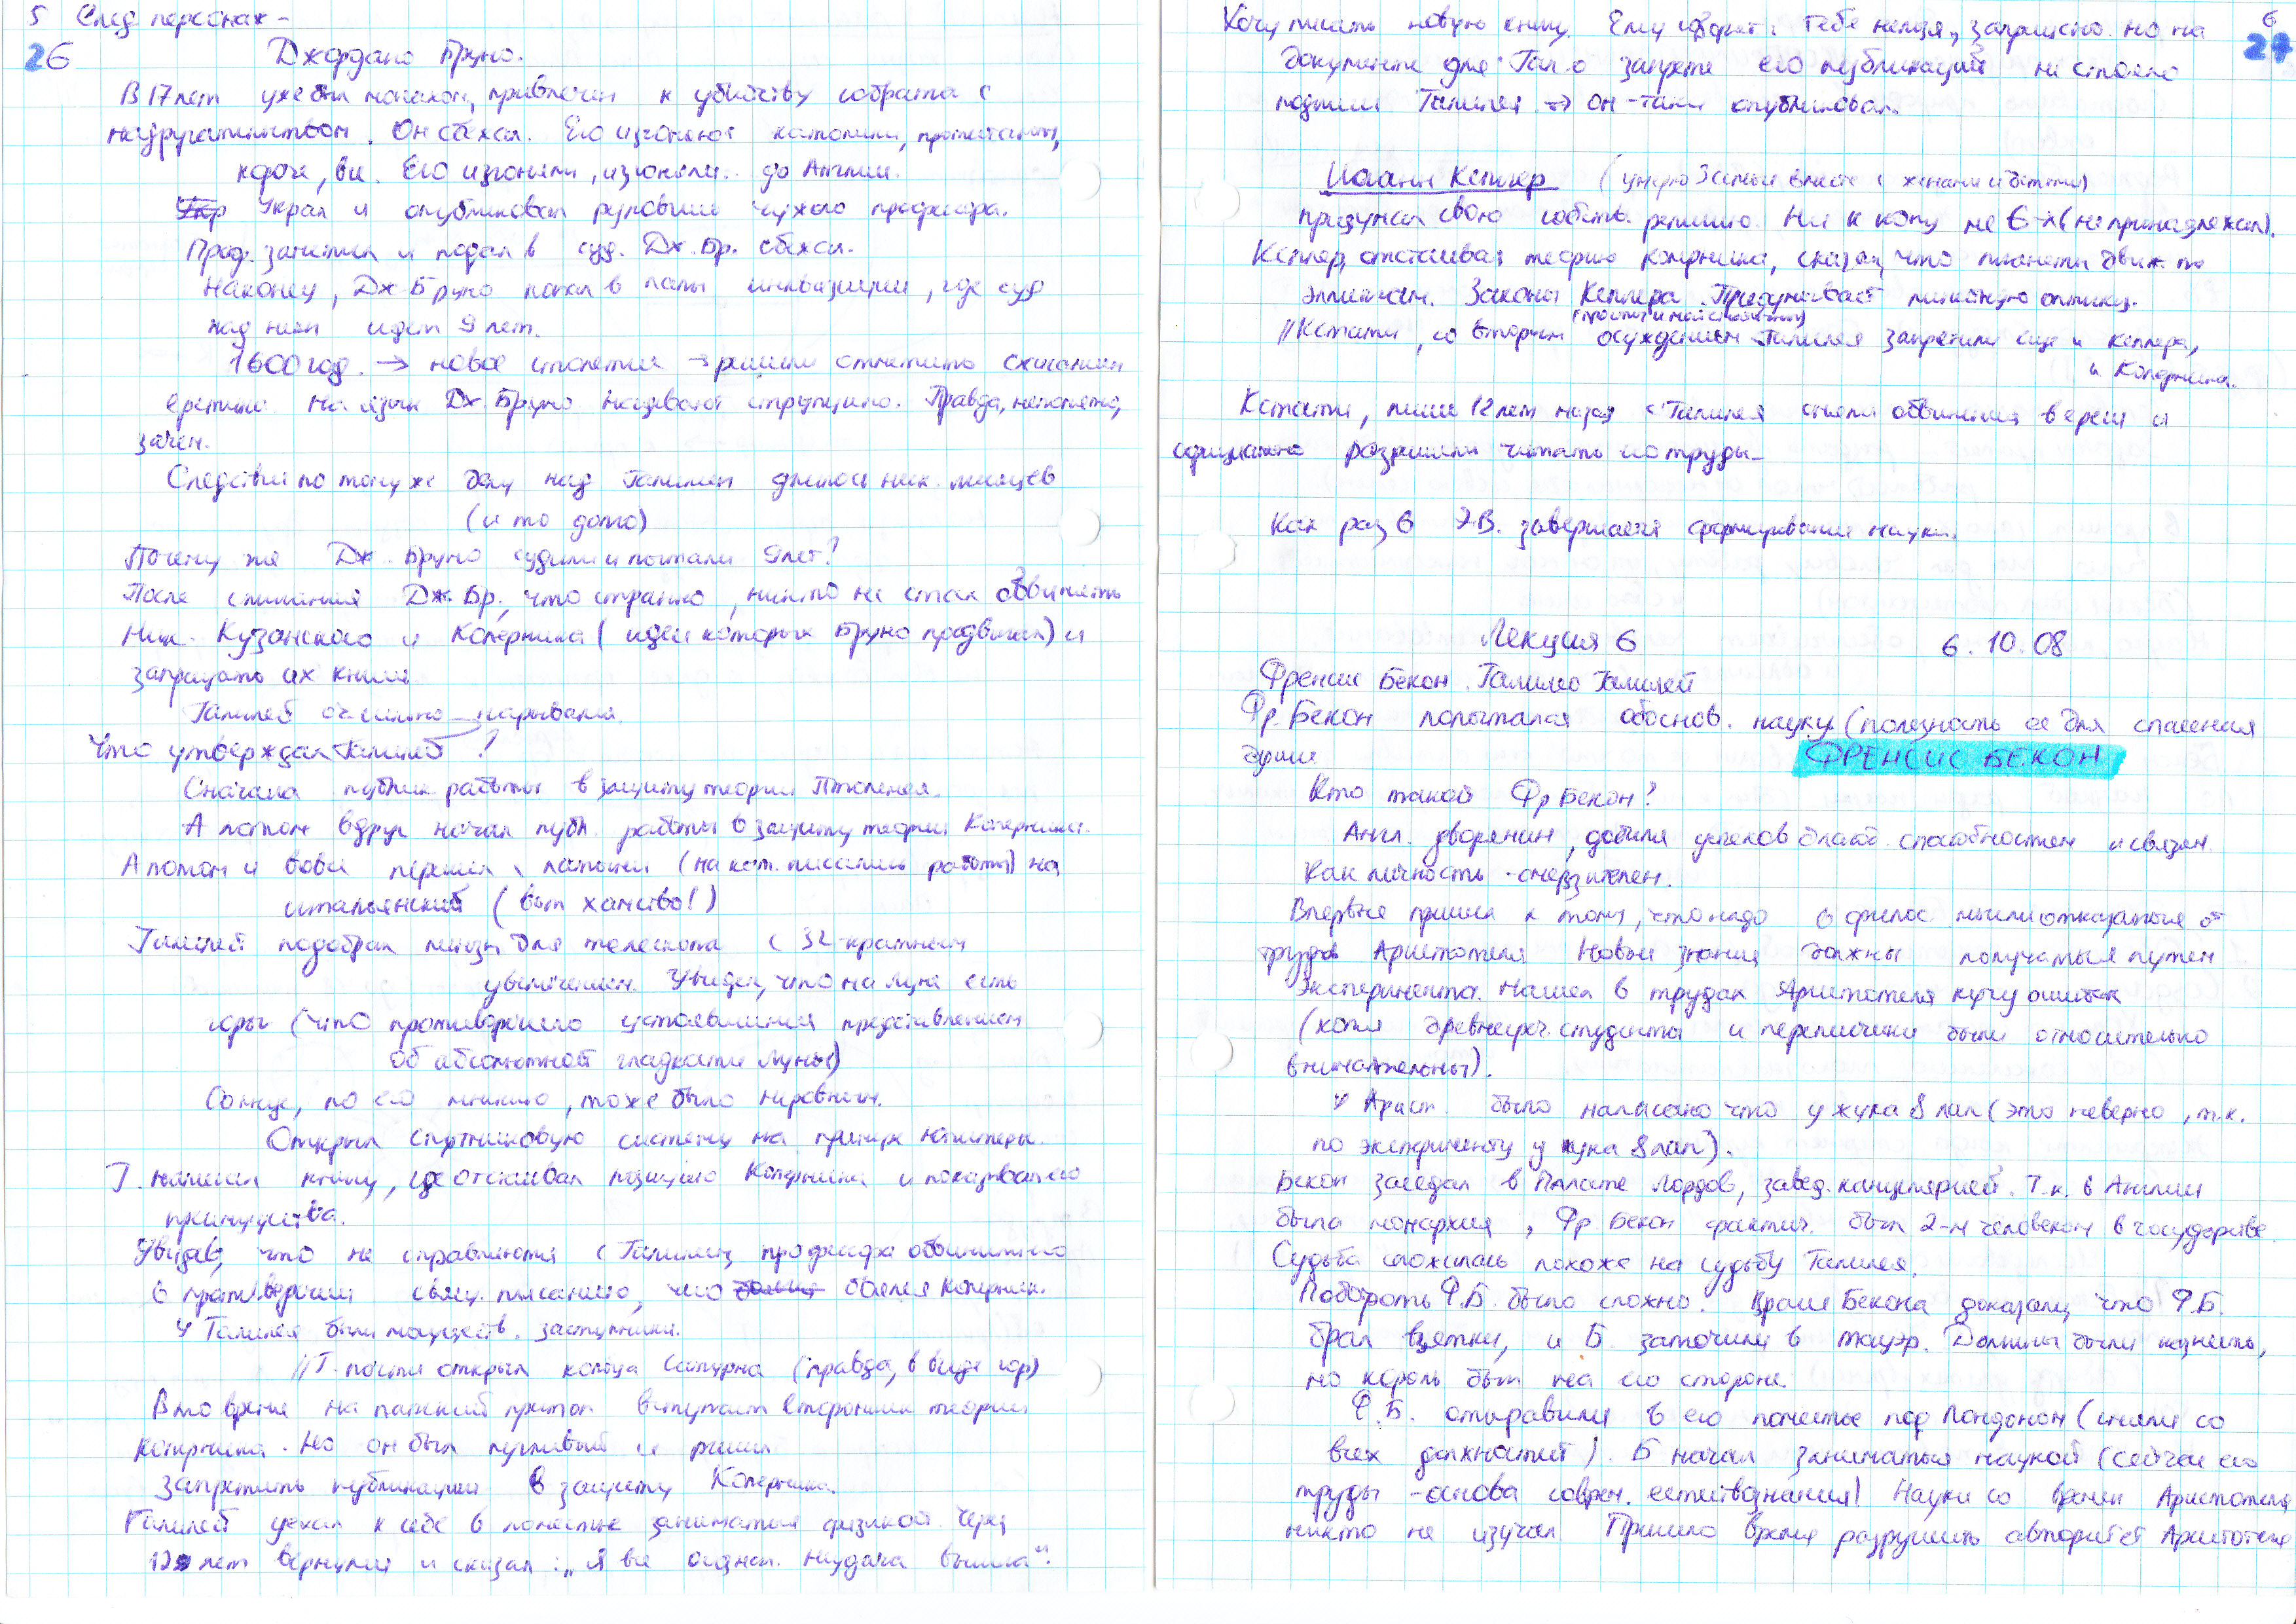 5 След. персонаж -
26 Джордано Бруно.
В 17 лет уже был монахом, привлечен к убийству собрата с
надругательством. Он сбежал. Его изгоняют католики, протестанты,
короче, все. Его изгоняли, изгоняли.. до Англии.
Украл и опубликовал рукопись чужого профессора.
Проф. заметил и подал в суд. Дж. Бр. сбежал.
Наконец, Дж. Бруно попал в лапы инквизиции, где суд
над ним идет 9 лет.
1600 год. → новое столетие → решили отметить сжиганием
еретика. На язык Дж. Бруно надевают струбцину. Правда, непонятно,
зачем.
Следствие по тому же делу над Галилеем длилось неск. месяцев
(и то долго)
Почему же Дж. Бруно судили и пытали 9 лет?
После сжигания Дж. Бр., что странно, никто не стал обвинять
Ник. Кузанского и Коперника (идеи которых Бруно продвигал) и
запрещать их книги
Галилей нарывался.
Что утверждал Галилей?
Сначала публик. работы в защиту теории Птолемея.
А потом вдруг начал публ. работы в защиту теории Коперника.
А потом и вовсе перешел с латыни (на кот. писались работы) на
итальянский (вот хамство!)
Галилей подобрал линзы для телескопа с 32-кратным
увеличением. Увидел, что на Луне есть
горы (что противоречило устоявшимся представлениям
об абсолютной гладкости Луны)
Солнце, по его мнению, тоже было неровным.
Открыл спутниковую систему на примере Юпитера.
Г. написал книгу, где отстаивал позицию Коперника и показывал его
преимущества.
Увидев, что не справляются с Галилеем, профессора обвинили его
в противоречии свящ. писанию, чего боялся Коперник.
У Галилея были могуществ. заступники.
// Г. почти открыл кольца Сатурна (правда, в виде гор)
В то время на папский престол вступает сторонник теории
Коперника. Но он был пугливый и решил
запретить публикации в защиту Коперника.
Галилей уехал к себе в поместье заниматься физикой. Через
12 лет вернулся и сказал: „я все осознал. Неудача вышла“.
6
27
Хочу писать новую книгу. Ему говорят: тебе нельзя, запрещено. Но на
документе для Гал. о запрете его публикаций не стояло
подписи Галилея → он-таки опубликовал.
Иоганн Кеплер (умерло 3 семьи вместе с женами и детьми)
придумал свою собств. религию. Ни к кому не ∈-л (не принадлежал).
Кеплер, отстаивая теорию Коперника, сказал, что планеты движ. по
эллипсам. Законы Кеплера. Придумывает линейную оптику.
// Кстати, со вторым осуждением Галилея запретили еще и Кеплера,
и Коперника.
Кстати, лишь 12 лет назад с Галилея сняли обвинения в ереси и
официально разрешили читать его труды.
Как раз в Э.В. завершается формирование науки.
Лекция 6 6.10.08
Френсис Бекон. Галилео Галилей
Фр. Бекон попытался обоснов. науку (полезность ее для спасения
души
ФРЕНСИС БЕКОН
Кто такой Фр Бекон?
Англ. дворянин, добился успехов благод. способностям и связям.
Как личность - омерзителен.
Впервые пришел к тому, что надо в филос. мысли отказаться от
трудов Аристотеля. Новые знания должны получаться путем
эксперимента. Нашел в трудах Аристотеля кучу ошибок
(хотя древнегреч. студиста и переписчики были относительно
внимательны).
У Арист. было написано что у жука 8 лап (это неверно, т.к.
по эксперименту у жука 8 лап).
Бекон заседал в Палате Лордов, завед. канцелярией. Т.к. в Англии
была монархия, Фр. Бекон фактич. был 2-м человеком в государстве.
Судьба сложилась похоже на судьбу Галилея.
Побороть Ф.Б. было сложно. Враги Бекона доказали, что Ф.Б.
брал взятки, и Б. заточили в тауэр. Должны были казнить,
но король был на его стороне.
Ф.Б. отправили в его поместье под Лондоном (сняли со
всех должностей). Б начал заниматься наукой (сейчас его
труды - основа соврем. естествознания) Науки со времен Аристотеля
никто не изучал. Пришло время разрушить авторитет Аристотеля